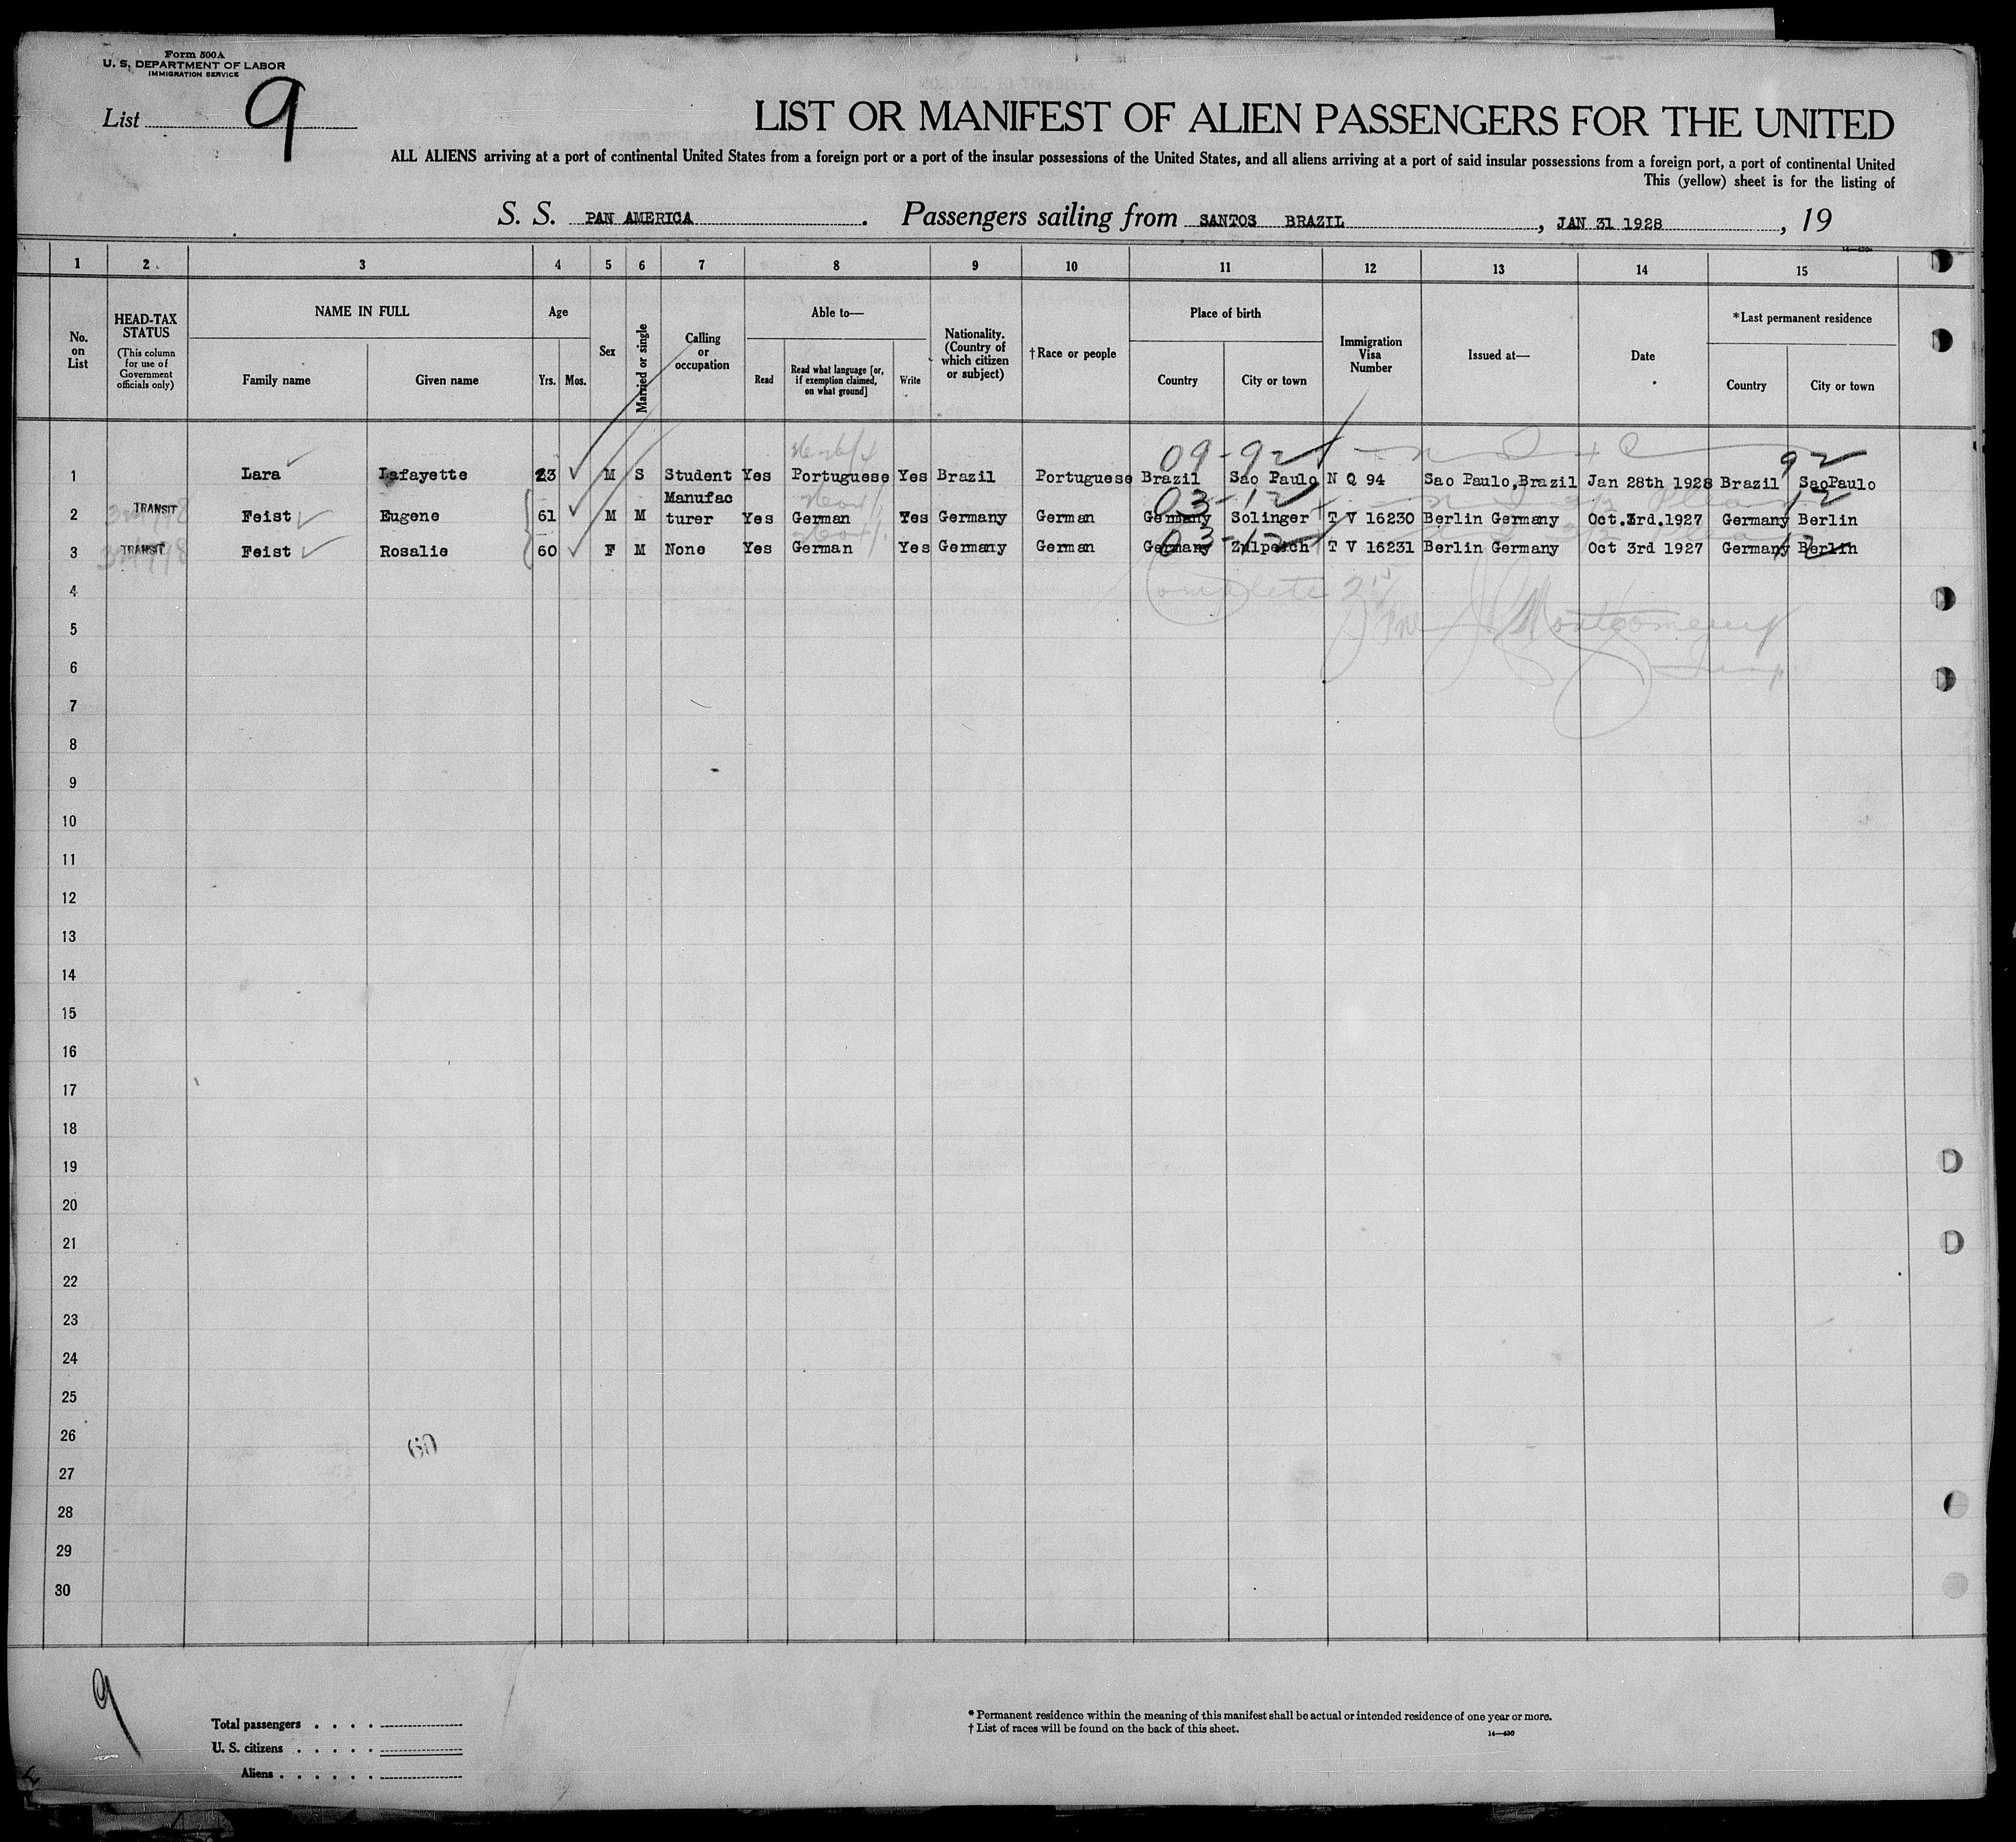 Form 500A
U. S. DEPARTMENT OF LABOR
IMMIGRATION SERVICE
List 9
LIST OR MANIFEST OF ALIEN PASSENGERS FOR THE UNITED
ALL ALIENS arriving at a port of continental United States from a foreign port or a port of the insular possessions of the United States, and all aliens arriving at a port of said insular possessions from a foreign port, a port of continental United
This (yellow) sheet is for the listing of
S. S. PAN AMERICA. Passengers sailing from SANTOS BRAZIL, JAN 31 1928, 19
1 2 3 4 5 6 7 8 9 10 11 12 13 14 15
No. on List
HEAD-TAX STATUS
(This column for use of Government officials only)
NAME IN FULL
Family name
Given name
Age
Yrs.
Mos.
Sex
Married or single
Calling or occupation
Able to—
Read
Read what language [or, if exemption claimed, on what ground]
Write
Nationality. (Country of which citizen or subject)
† Race or people
Place of birth
Country
City or town
Immigration Visa Number
Issued at—
Date
*Last permanent residence
Country
City or town
09-92 92
1 Lara Lafayette 23 M S Student Yes Portuguese Yes Brazil Portuguese Brazil Sao Paulo N Q 94 Sao Paulo,Brazil Jan 28th 1928 Brazil SaoPaulo
03-12 12
2 TRANSIT Feist Eugene 61 M M Manufac
turer Yes German Yes Germany German Germany Solinger T V 16230 Berlin Germany Oct.3rd.1927 Germany Berlin
03-12 12
3 TRANSIT Feist Rosalie 60 F M None Yes German Yes Germany German Germany Zulpeich T V 16231 Berlin Germany Oct 3rd 1927 Germany Berlin
4 Complete
5 Montgomery
6
7
8
9
10
11
12
13
14
15
16
17
18
19
20
21
22
23
24
25
26
60
27
28
29
30
9
Total passengers . . . .
U. S. citizens . . . . .
Aliens . . . . . .
* Permanent residence within the meaning of this manifest shall be actual or intended residence of one year or more.
† List of races will be found on the back of this sheet.
14—430